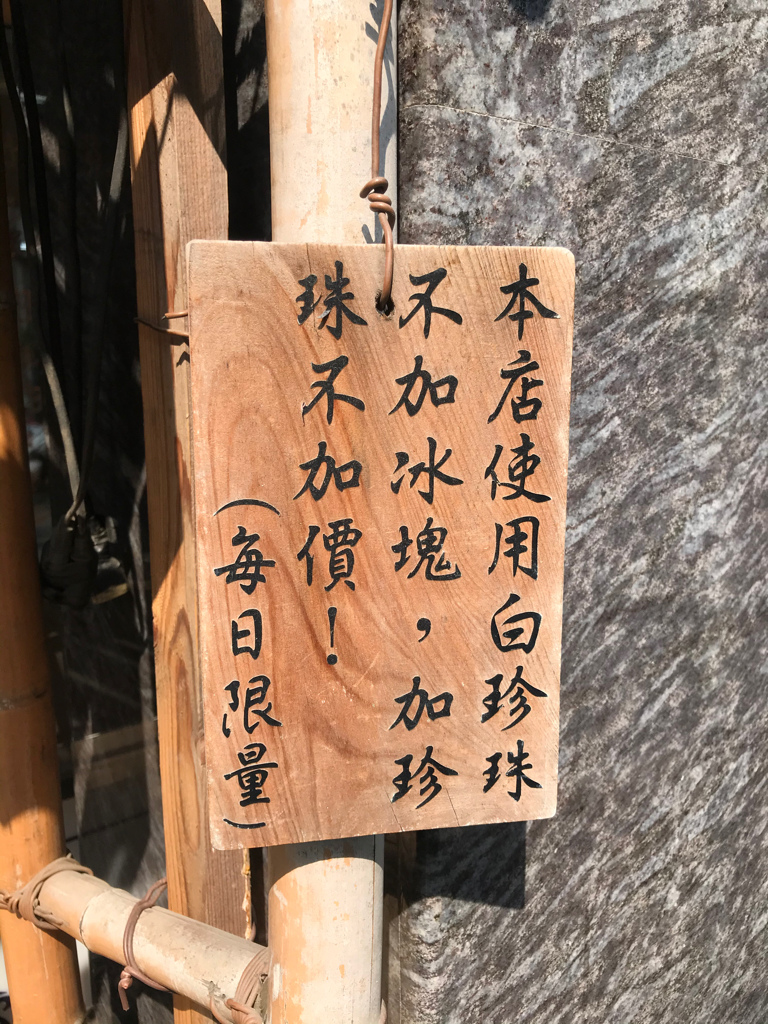 本店使用白珍珠
不加冰塊，加珍
珠不加價！
（每日限量）